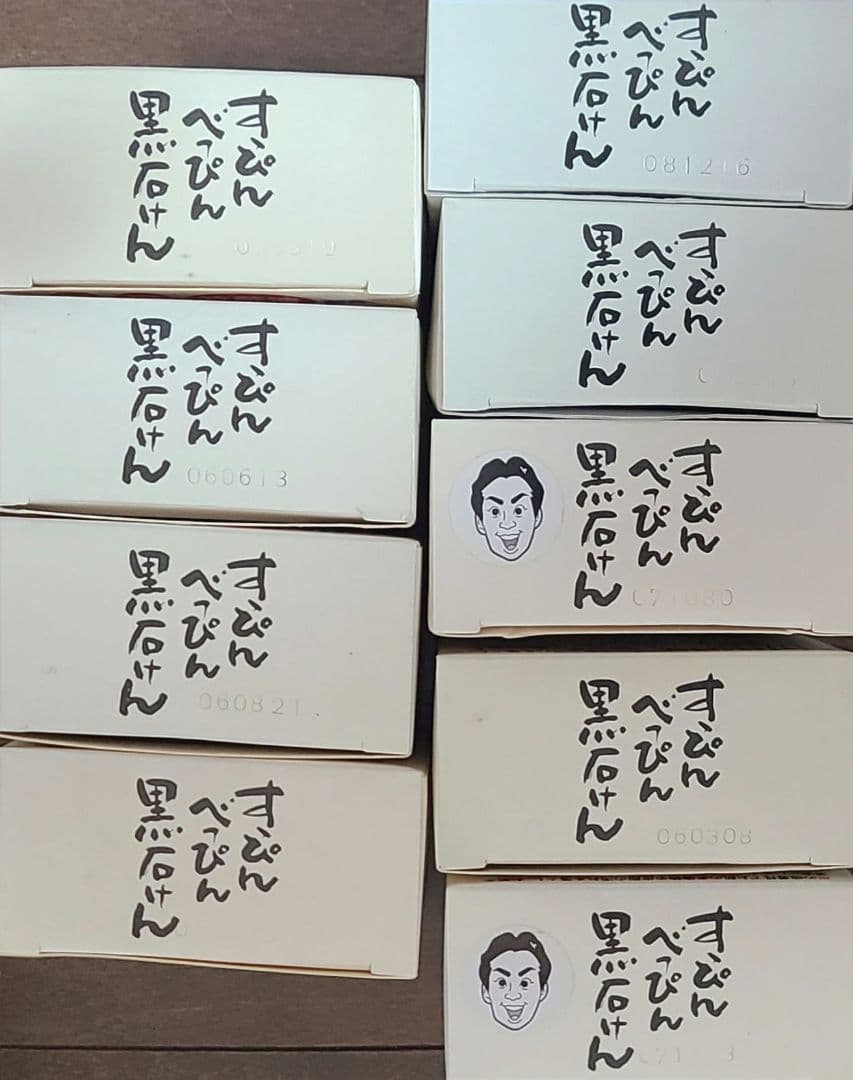 すっぴん
べっぴん
黒石けん
すっぴん
べっぴん
黒石けん
060613
すっぴん
べっぴん
黒石けん
060821
すっぴん
べっぴん
黒石けん
すっぴん
べっぴん
黒石けん
081216
すっぴん
べっぴん
黒石けん
すっぴん
べっぴん
黒石けん
すっぴん
べっぴん
黒石けん
060308
すっぴん
べっぴん
黒石けん